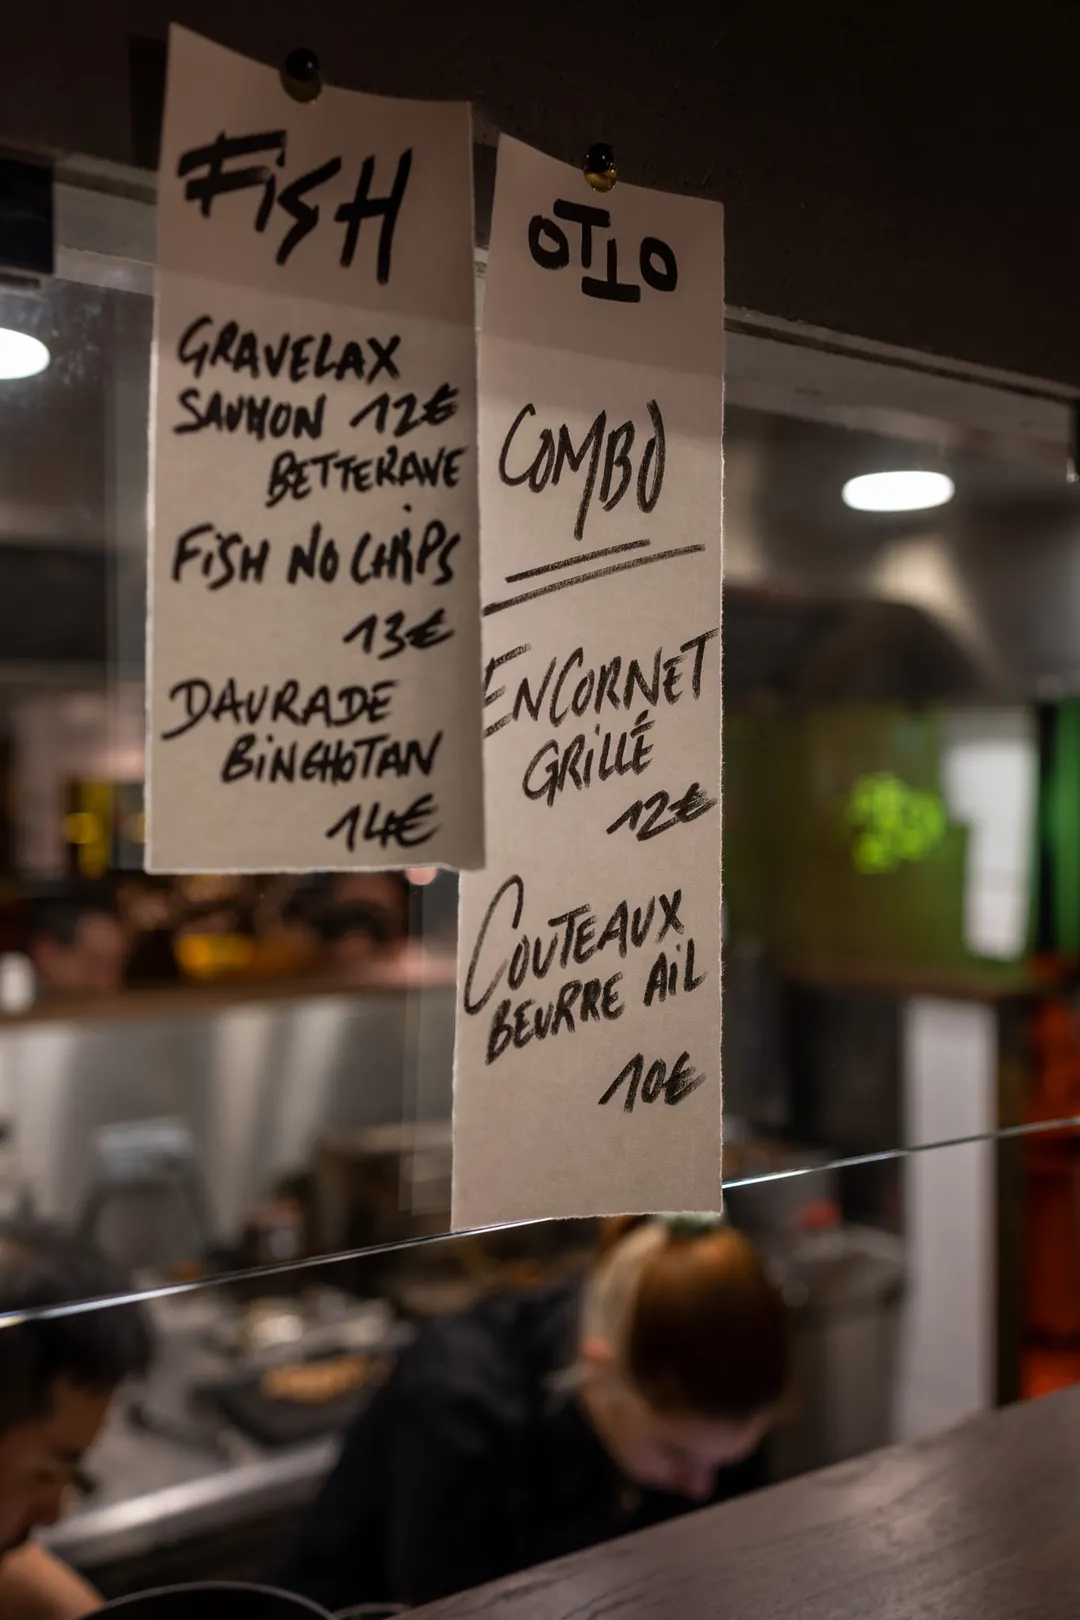 FISH
GRAVELAX
SAUMON 12€
BETTERAVE
FISH NO CHIPS
13€
DAURADE
BINCHOTAN
14€
OTTO
COMBO
ENCORNET
GRILLÉ
12€
COUTEAUX
BEURRE AIL
10€